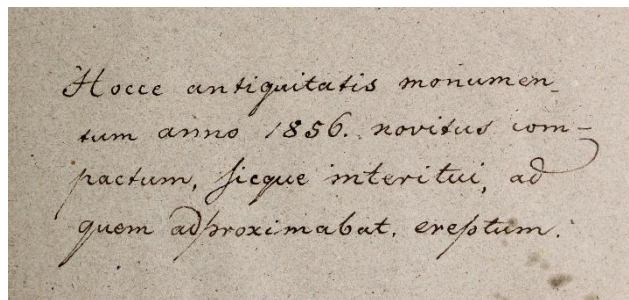 Hocce antiquitatis monumen-
tum anno 1856. novitus com-
pactum, sicque interitui, ad
quem adproximabat, ereptum.